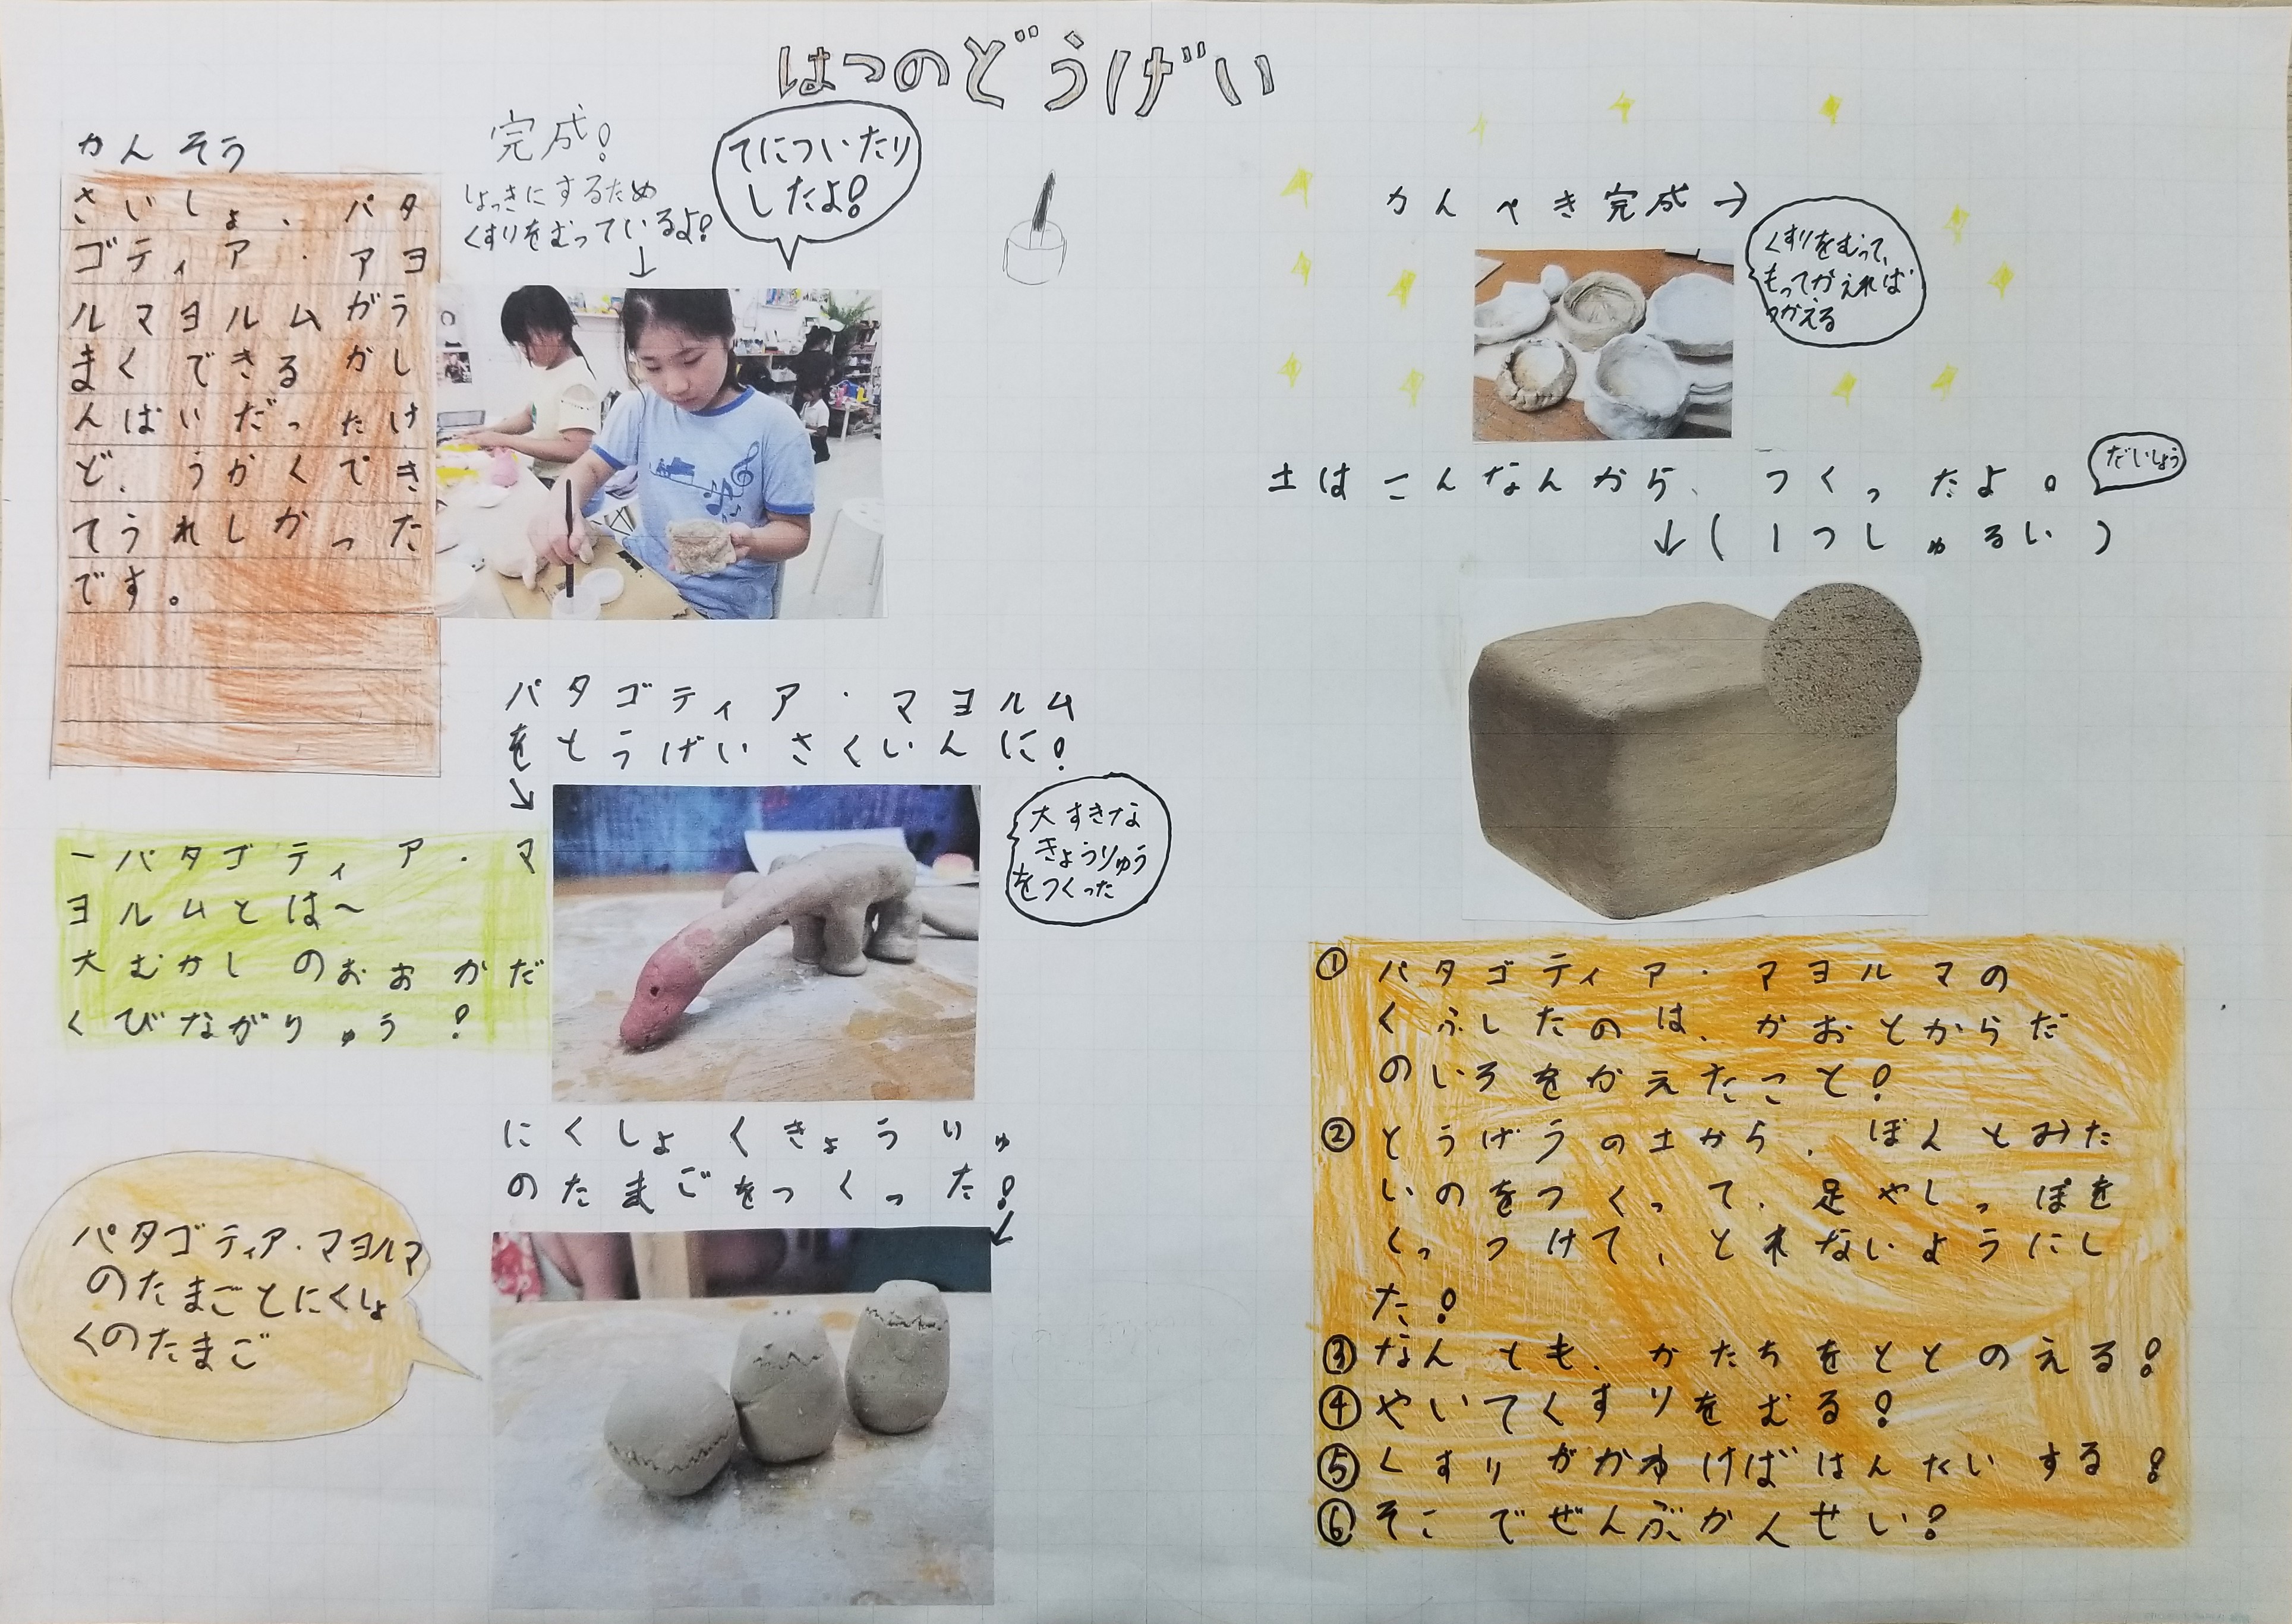 はつのどうげい
かんそう
さいしょ、パタ
ゴティア・アヨ
ルマヨルムがう
まくできるがし
んぱいだったけ
ど、うかくでき
てうれしかった
です。
完成!
しょっきにするため
くすりをむっているよ!
↓
てについたり
したよ!
パタゴティア・マヨルム
をとうげいさくしんに!
↓
大すきな
きょうりゅう
をつくった
ーパタゴティア・マ
ヨルムとは〜
大むかしのおおかだ
くびながりゅう?
にくしょくきょうりゅ
のたまごをつくった!
↓
パタゴティア・マヨルマ
のたまごとにくしょ
くのたまご
かんぺき完成→
くすりをむって、
もってがえれば
つがえる
土はこんなんから、つくったよ。
だいしょう
↓(1つしゅるい)
① パタゴティア・マヨルマの
くふしたのは、かおとからだ
のいろをかえたこと!
② とうげうの土から、ぼんとみた
いのをつくって、足やしっぽを
くっつけて、とれないようにし
た!
③ なんとも、かたちをととのえる!
④ やいてくすりをむる!
⑤ くすりがかわけばはんたいする!
⑥ そこでぜんぶかんせい?